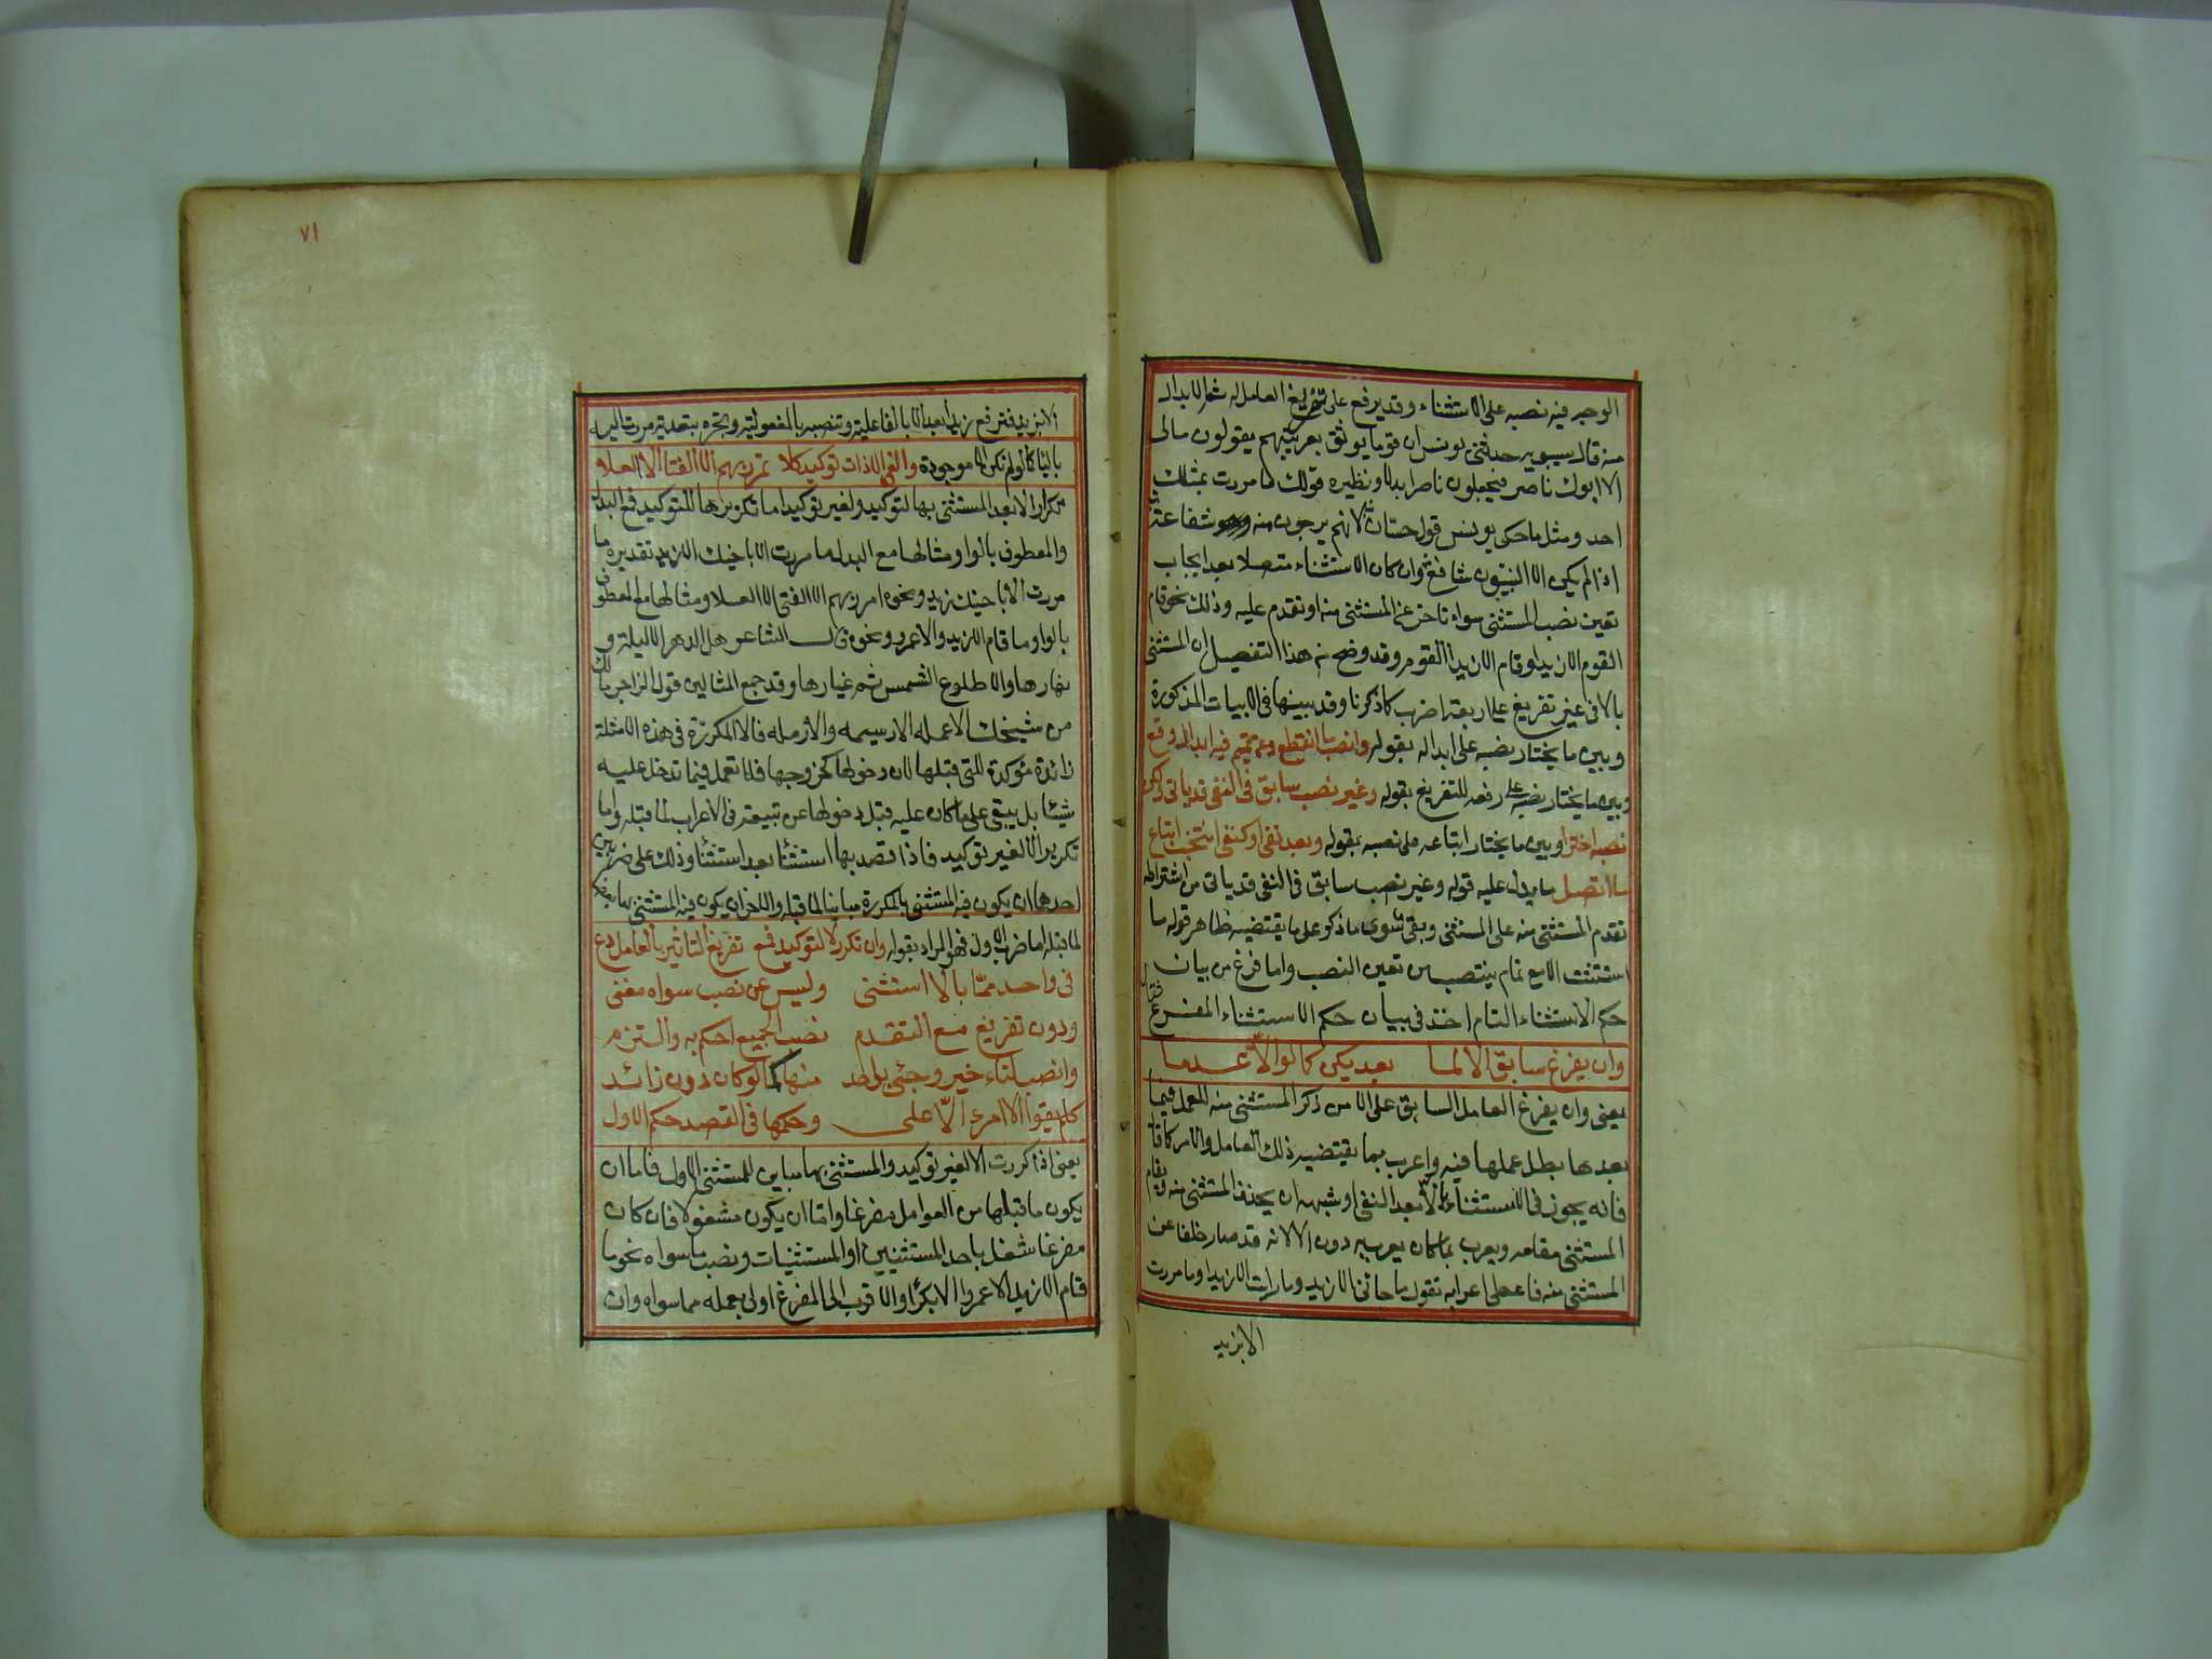 الوجه فيه نصبه على الاستثناء وقد يرفع على تفريغ العامل له ثم الابدال
منه قال سيبويه حدثنى يونس ان قوما يوثق بعربيتهم يقولون مالى
الا ابوك ناصر فيجعلون ناصرا بدلا ونظيره قولك ما مررت بمثلك
احد ومثل ما حكى يونس قول حسان لانهم يرجون منه شفاعة
اذا لم يكن الا النبيون شافع وان كان الاستثناء متصلا بعد ايجاب
تعين نصب المستثنى سواء تاخر عن المستثنى منه او تقدم عليه وذلك نحو قام
القوم الا زيدا وقام الا زيدا القوم وقد وضح من هذا التفصيل ان المستثنى
بالا فى غير تفريغ على اربعة اضرب كما ذكرنا وقد بينها فى الابيات المذكورة
وبين ما يختار نصبه على ابداله بقوله وانصب ما انقطع وعن تميم فيه ابدال وقع
وبين ما يختار نصبه على رفعه للتفريغ بقوله وغير نصب سابق فى النفى قد ياتى ولكن
نصبه اختر وبين ما يختار اتباعه على نصبه بقوله وبعد نفى او كنفى انتخب اتباع
ما اتصل ما يدل عليه قوله وغير نصب سابق فى النفى قد ياتى من اشتراط
تقدم المستثنى منه على المستثنى وبقى سوى ما ذكر على ما يقتضيه ظاهر قوله ما
استثنت الا مع تمام ينتصب من تعين النصب واما فرغ من بيان
حكم الاستثناء التام اخذ فى بيان حكم الاستثناء المفرغ فقال
وان يفرغ سابق الا لما بعد يكن كما لو الا عدما
يعنى وان يفرغ العامل السابق على الا من ذكر المستثنى منه للعمل فيما
بعدها بطل عملها فيه واعرب بما يقتضيه ذلك العامل والامر كما قال
فانه يجوز فى الاستثناء بالا بعد النفى او شبهه ان يحذف المستثنى منه ويقام
المستثنى مقامه ويعرب بما كان يعرب به دون الا لانه قد صار خلفا عن
المستثنى منه فاعطى اعرابه تقول ما جائنى الا زيد وما رايت الا زيدا وما مررت
الا بزيد
٧١
الا بزيد فترفع زيدا بعد الا بالفاعلية وتنصبه بالمفعولية وتجره بتعدية مررت اليه
بالباء كما لو لم تكن الا موجودة والغ الا ذات توكيد كلا تمرر بهم الا الفتى الا العلا
تكرار الا بعد المستثنى بها لتوكيد ولغير توكيد اما تكريرها للتوكيد فمع البدل
والمعطوف بالواو مثالها مع البدل ما مررت الا باخيك الا زيد تقديره ما
مررت الا باخيك زيد ونحوه امرر بهم الا الفتى الا العلا ومثالها مع المعطوف
بالواو ما قام الا زيد والا عمرو ونحوه قول الشاعر هل الدهر الا ليلة و
نهارها والا طلوع الشمس ثم غيارها وقد جمع المثالين قول الراجز مالك
من شيخك الا عمله الا رسيمه والا رمله فالا المكررة فى هذه الامثلة
زائدة مؤكدة للتى قبلها لان دخولها كخروجها فلا تعمل فيما تدخل عليه
شيئا بل يبقى على ما كان عليه قبل دخولها من تبيعته فى الاعراب لما قبله واما
تكرير الا لغير توكيد فاذا قصد بها استثنا بعد استثنا وذلك على ضربين
احدهما ان يكون فيه المستثنى بالمكررة مباينا لما قبله والاخر ان يكون فيه المستثنى بها بعضا
لما قبله اما ضرب الاول فهو المراد بقوله وان تكرر لا لتوكيد فمع تفريغ التاثير بالعامل دع
فى واحد مما بالا استثنى وليس عن نصب سواه مغنى
ودون تفريغ مع التقدم نصب الجميع احكم به والتزم
وانصب لتاخير وجئ بواحد منها كما لو كان دون زائد
كلم يفوا الا امرؤ الا على وحكمها فى القصد حكم الاول
يعنى اذا كررت الا لغير توكيد والمستثنى بها مباين للمستثنى الاول فاما ان
يكون ما قبلها من العوامل مفرغا واما ان يكون مشغولا فان كان
مفرغا شغل باحد المستثنيين او المستثنيات ونصب ما سواه نحو ما
قام الا زيد الا عمروا الا بكرا والاقرب الى المفرغ اولى بعمله مما سواه وان